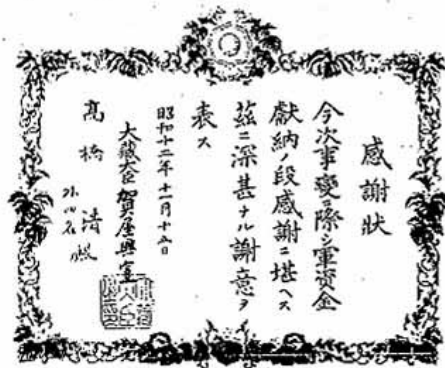 感謝狀
今次事變ニ際シ軍資金
献納ノ段感謝ニ堪ヘス
茲ニ深甚ナル謝意ヲ
表ス
昭和十二年十一月十五日
大藏大臣賀屋興宣
高橋清殿
外四名